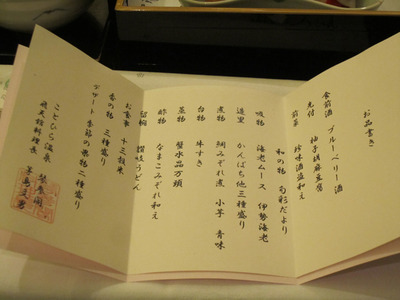 お品書き
食前酒 ブルーベリー酒
先付 柚子胡麻豆腐
前菜 珍味酒盗和え
和の物 旬彩だより
吸物 海老ムース 伊勢海老
造里 かんぱち他三種盛り
煮物 鯛みぞれ煮 小芋 青味
台物 牛すき
蒸物 蟹水晶万頭
酢物 なまこみぞれ和え
留椀 讃岐うどん
お食事 十三穀米
香の物 三種盛り
デザート 季節の果物二種盛り
ことひら温泉 琴参閣
総料理長